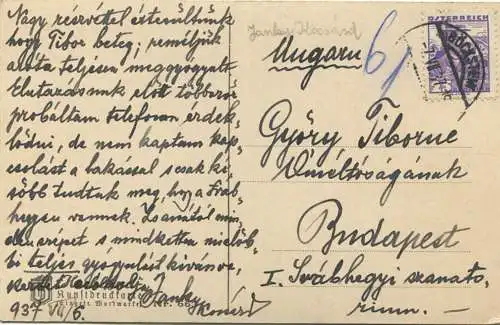 Nagy részvéttel értesültünk
hogy Tibor beteg; reméljük
azóta teljesen meggyógyult
Elutazásunk előtt többször
próbáltam telefonon érdek-
lődni, de nem kaptam kap-
csolást a lakással s csak ké-
sőbb tudtuk meg, hogy a Sváb-
hegyen vannak. Zsanától min-
den szépet s mindkettőn mielőb-
bi teljes gyógyulást kívánva,
Janky
937 VII/6.
Kunstdruck
Janky Kocsárd
Ungarn
61
ÖSTERREICH
Győry Tiborné
Őméltóságának
Budapest
I. Svábhegyi szanató-
rium.